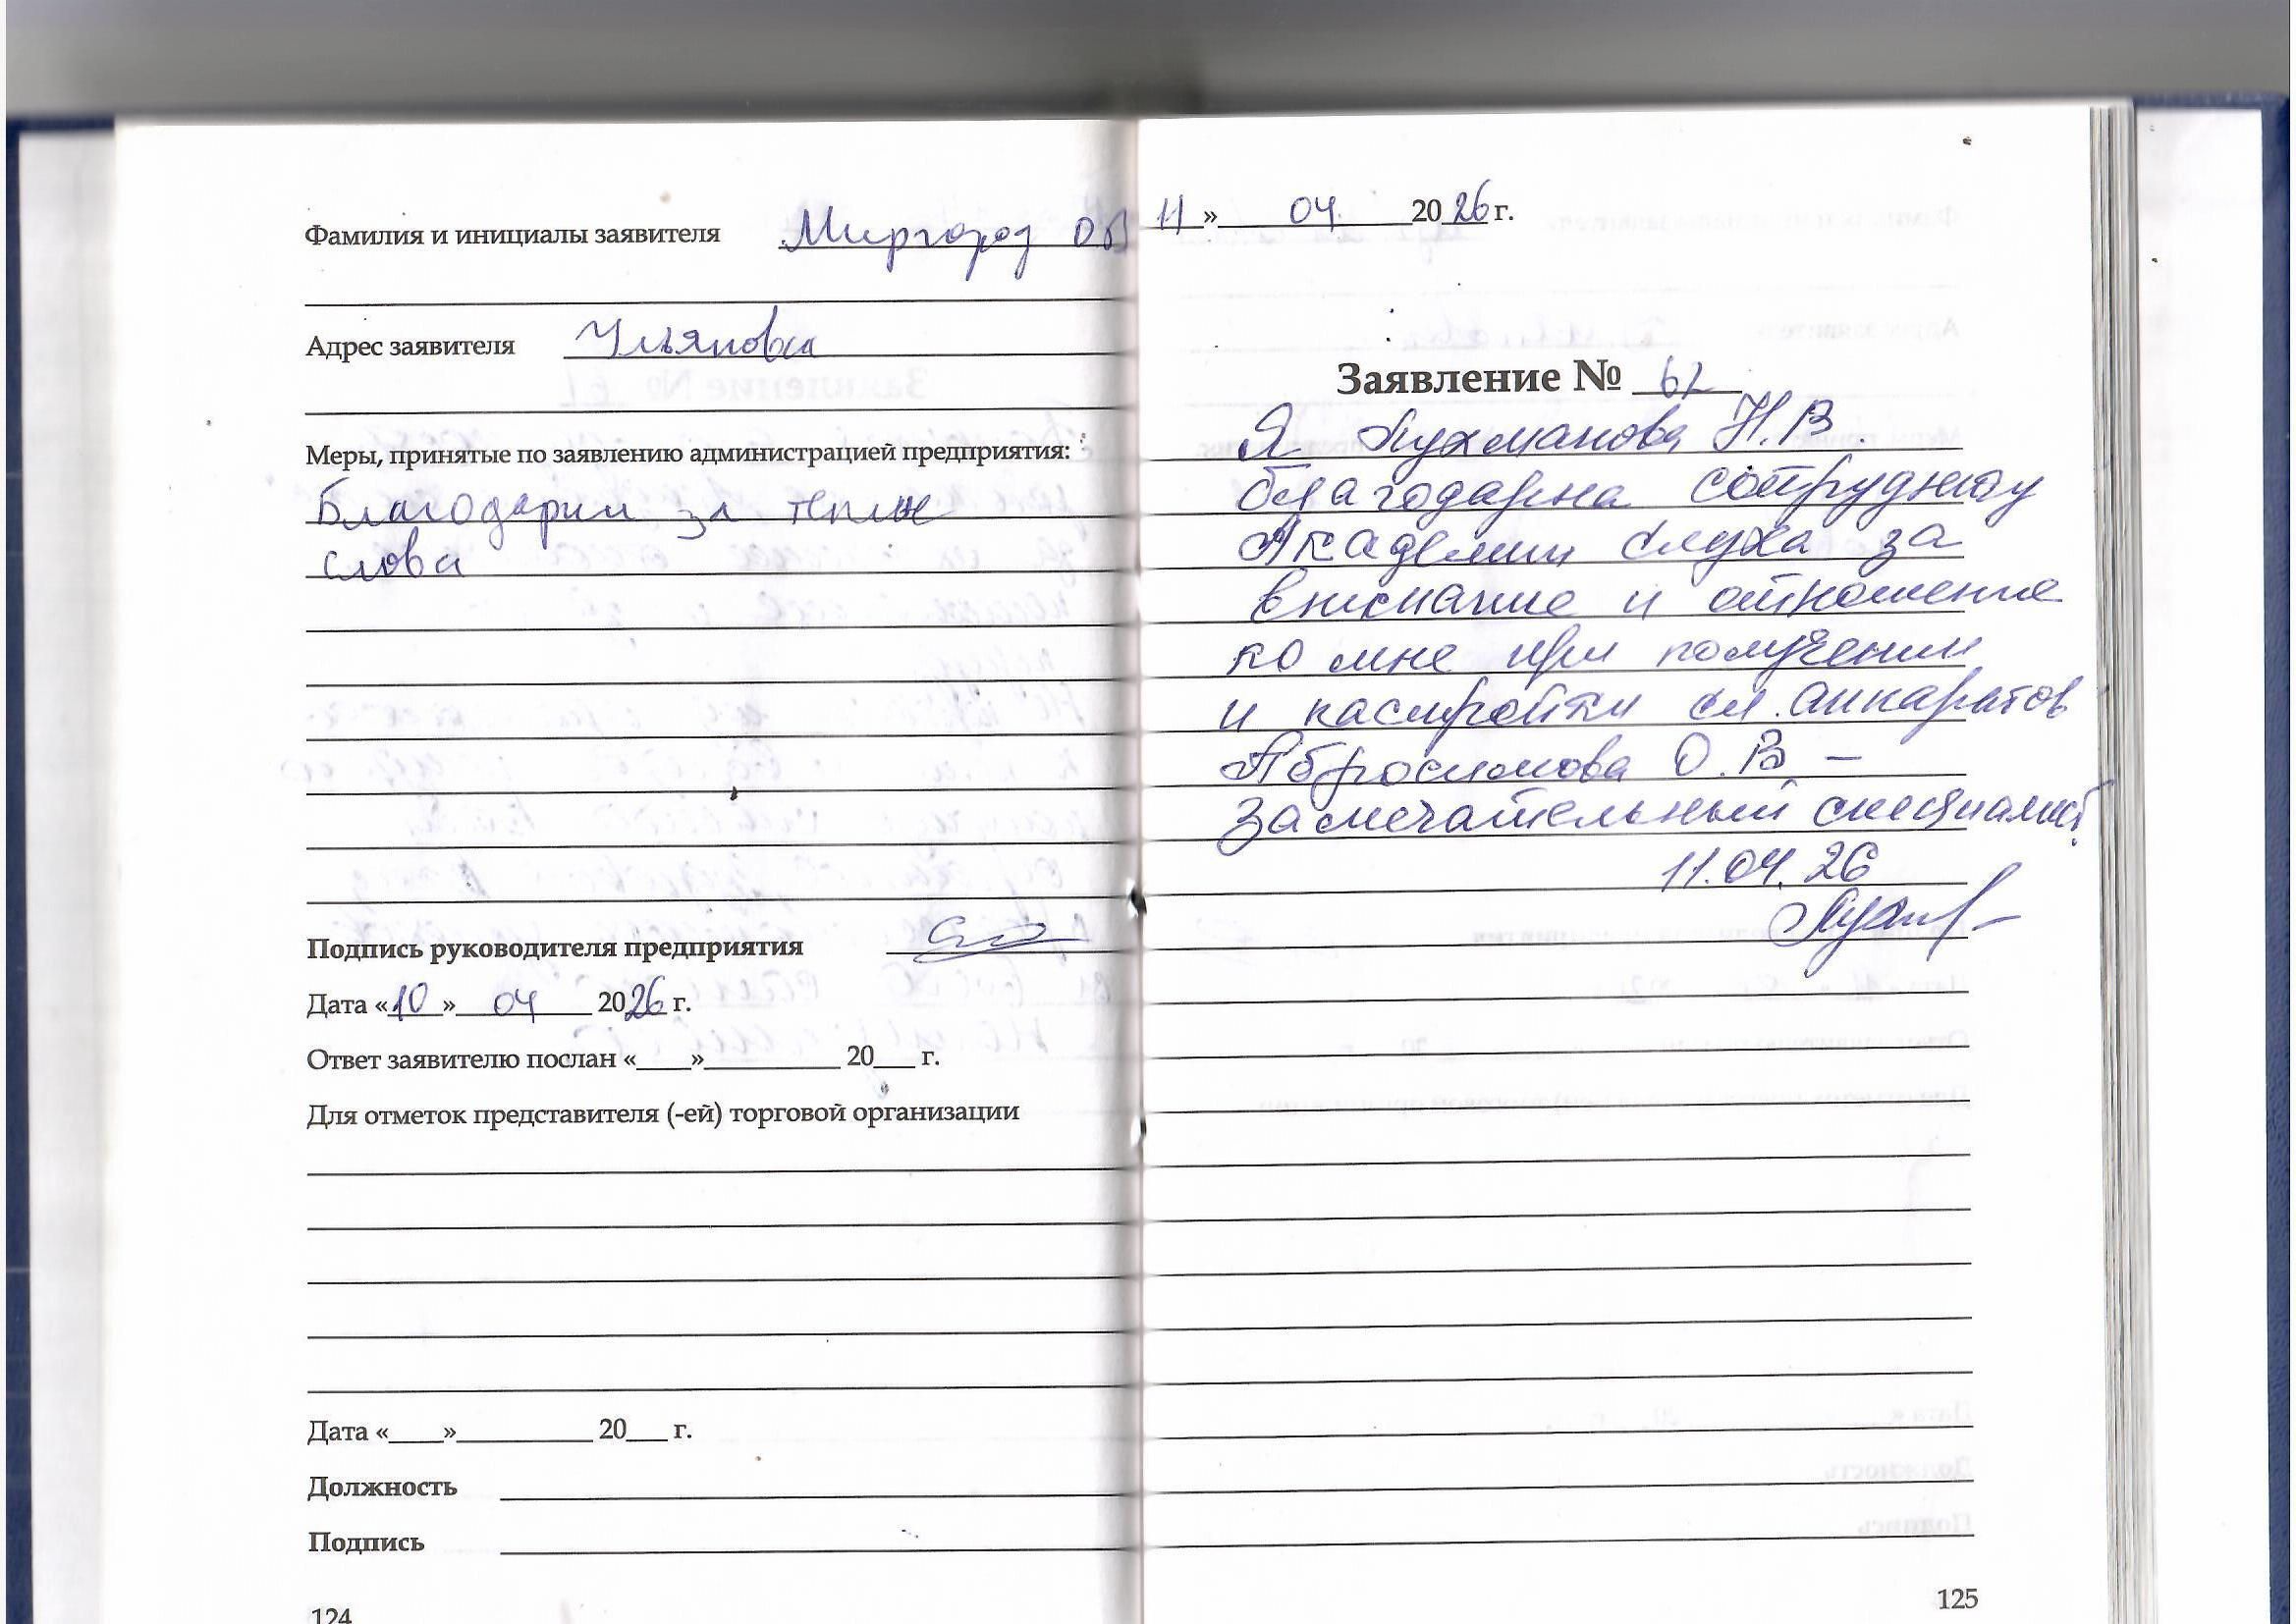 Фамилия и инициалы заявителя Миргород ОВ
Адрес заявителя Ульяновка
Меры, принятые по заявлению администрацией предприятия:
Благодарим за теплые
слова
Подпись руководителя предприятия
Дата «10» 04 2026 г.
Ответ заявителю послан «___»__________ 20___ г.
Для отметок представителя (-ей) торговой организации
Дата «____»__________ 20___ г.
Должность
Подпись
124
11» 04 2026 г.
Заявление № 62
Я Лухманова Н.В.
благодарна сотруднику
Академии слуха за
внимание и отношение
ко мне при получении
и настройки сл. аппаратов
Абросимова О.В –
замечательный специалист
11.04.26
125